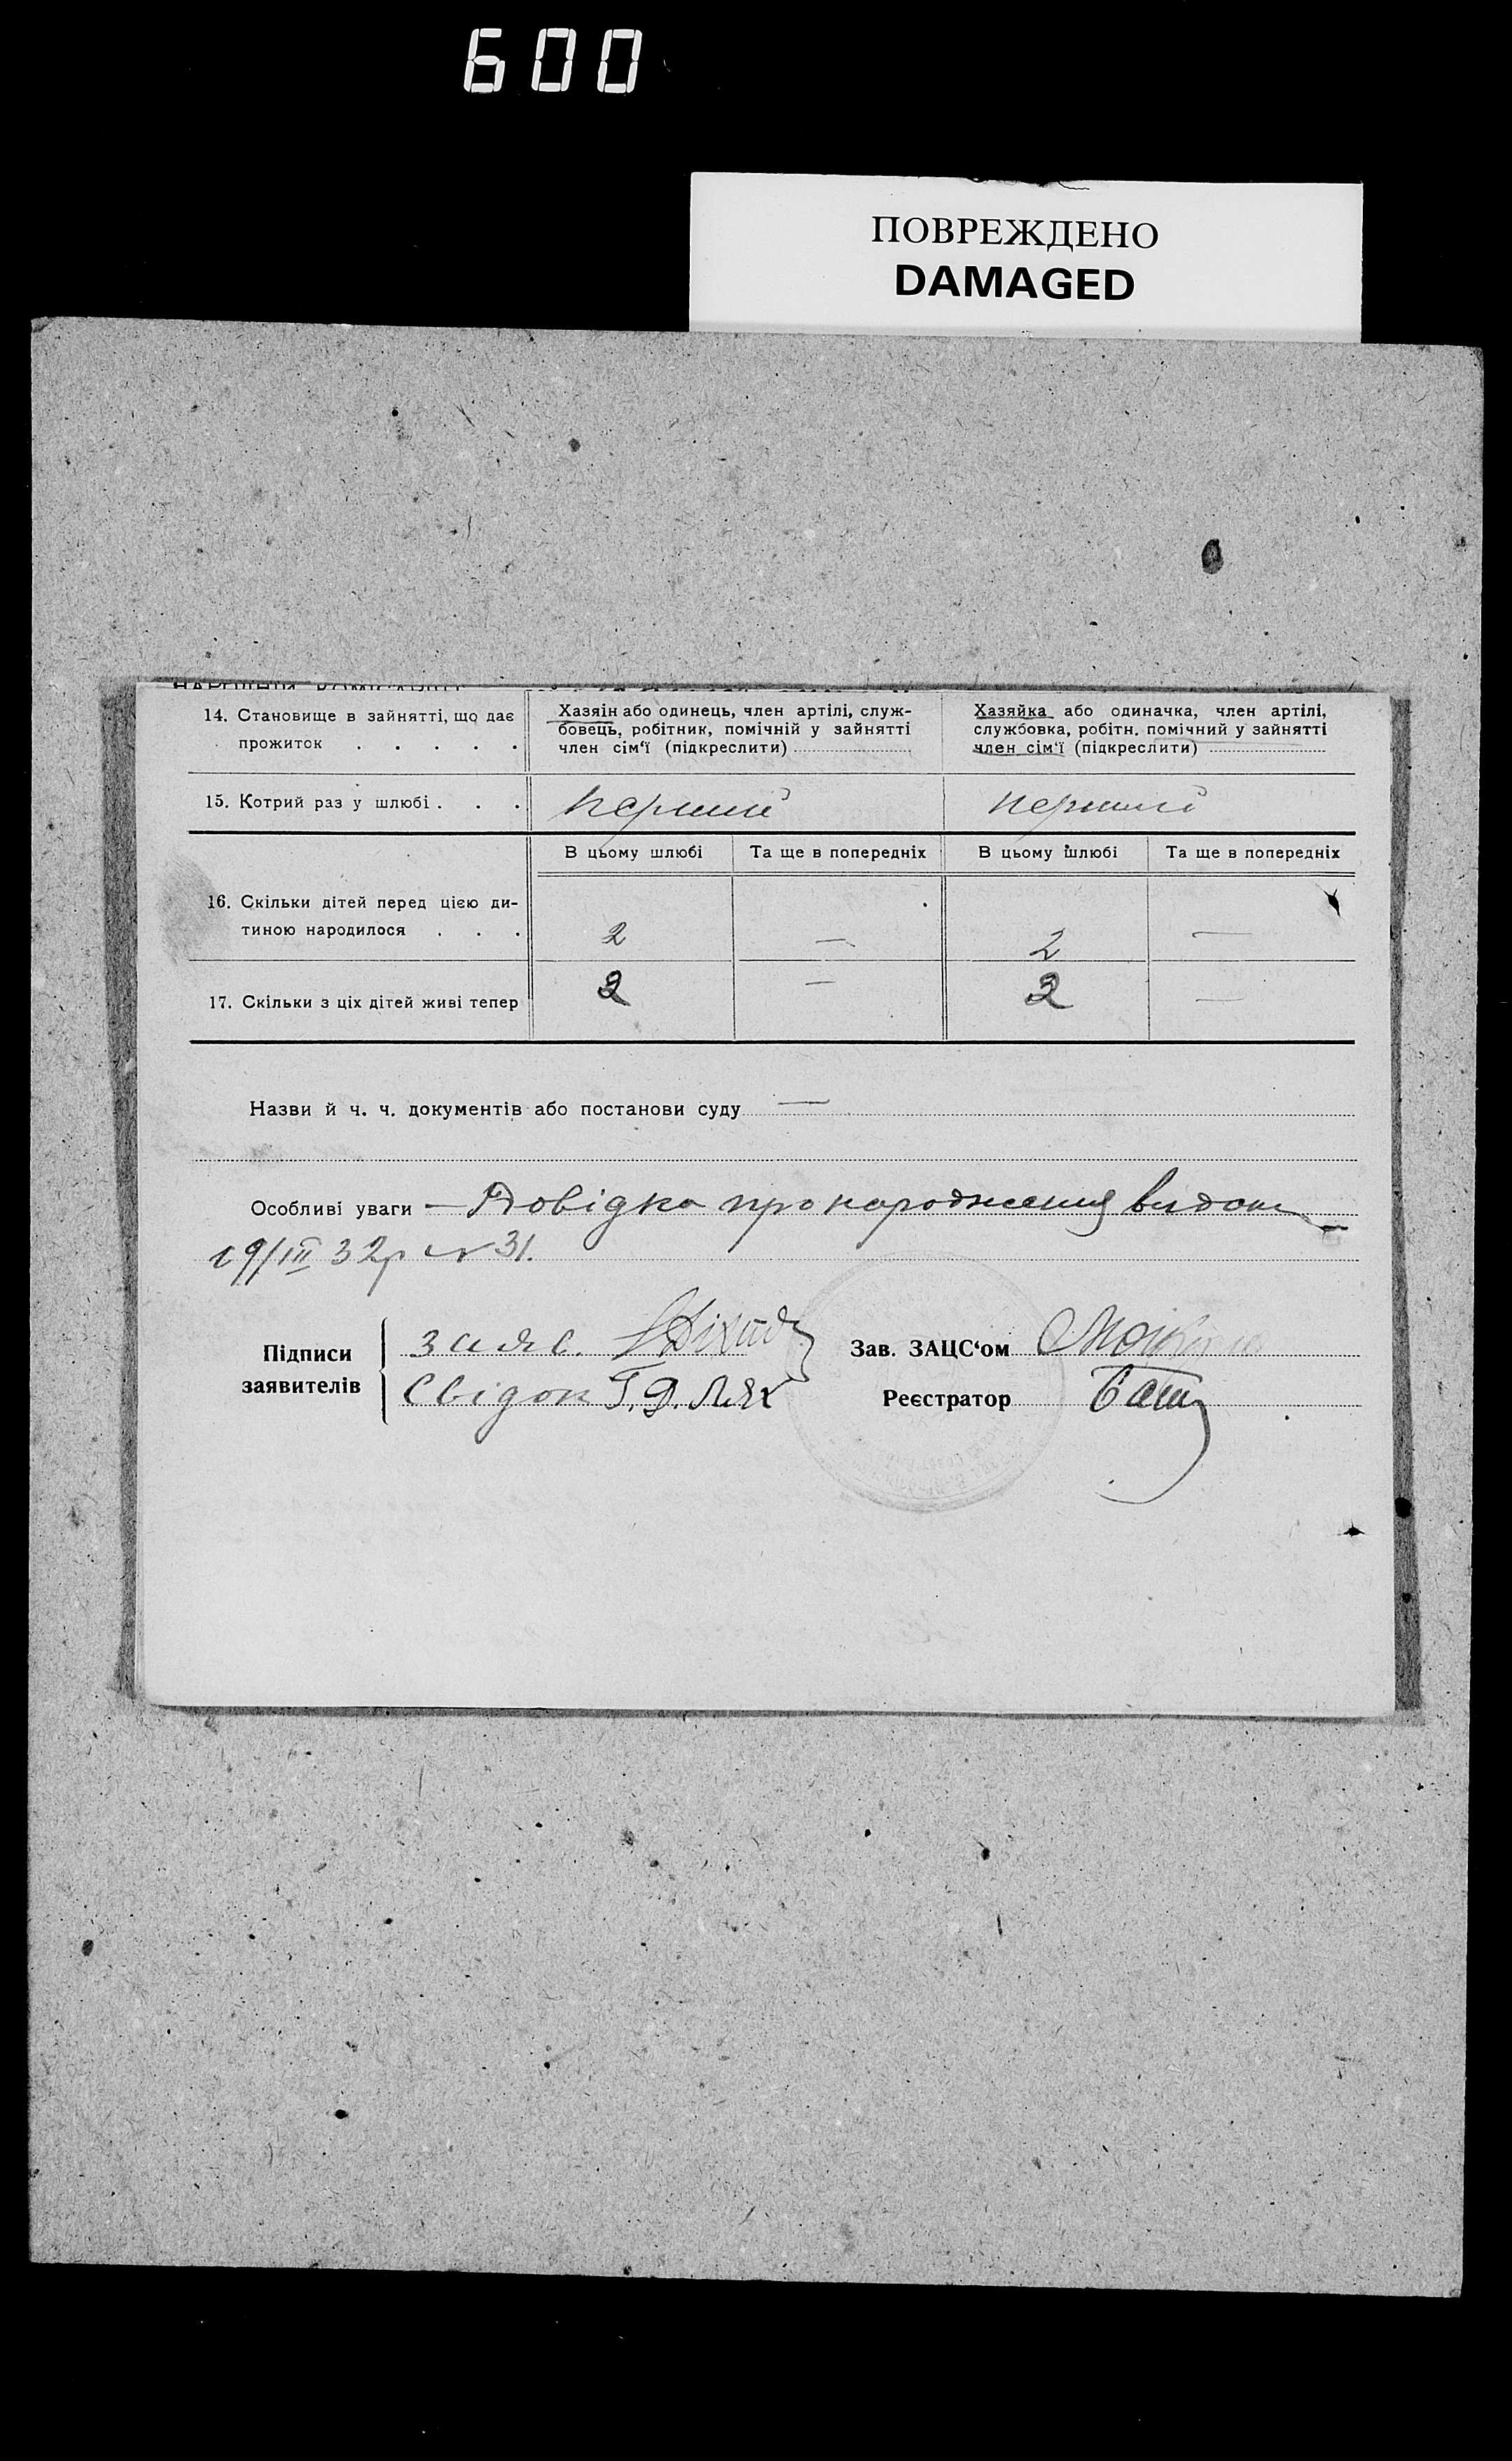 600
ПОВРЕЖДЕНО
DAMAGED
14. Становище в зайнятті, що дає
прожиток . . . . .
Хазяїн або одинець, член артілі, служ-
бовець, робітник, помічній у зайнятті
член сім‘ї (підкреслити)
Хазяйка або одиначка, член артілі,
службовка, робітн. помічний у зайнятті
член сім‘ї (підкреслити)
15. Котрий раз у шлюбі . . .
перший
перший
В цьому шлюбі
Та ще в попередніх
В цьому шлюбі
Та ще в попередніх
16. Скільки дітей перед цією ди-
тиною народилося . . .
2 — 2 —
17. Скільки з ціх дітей живі тепер
2 — 2 —
Назви й ч. ч. документів або постанови суду —
Особливі уваги — Довідка про народження видана
19/III 32р № 31.
Підписи
заявителів
Свідок Г. Д. Лях
Зав. ЗАЦС‘ом
Реєстратор